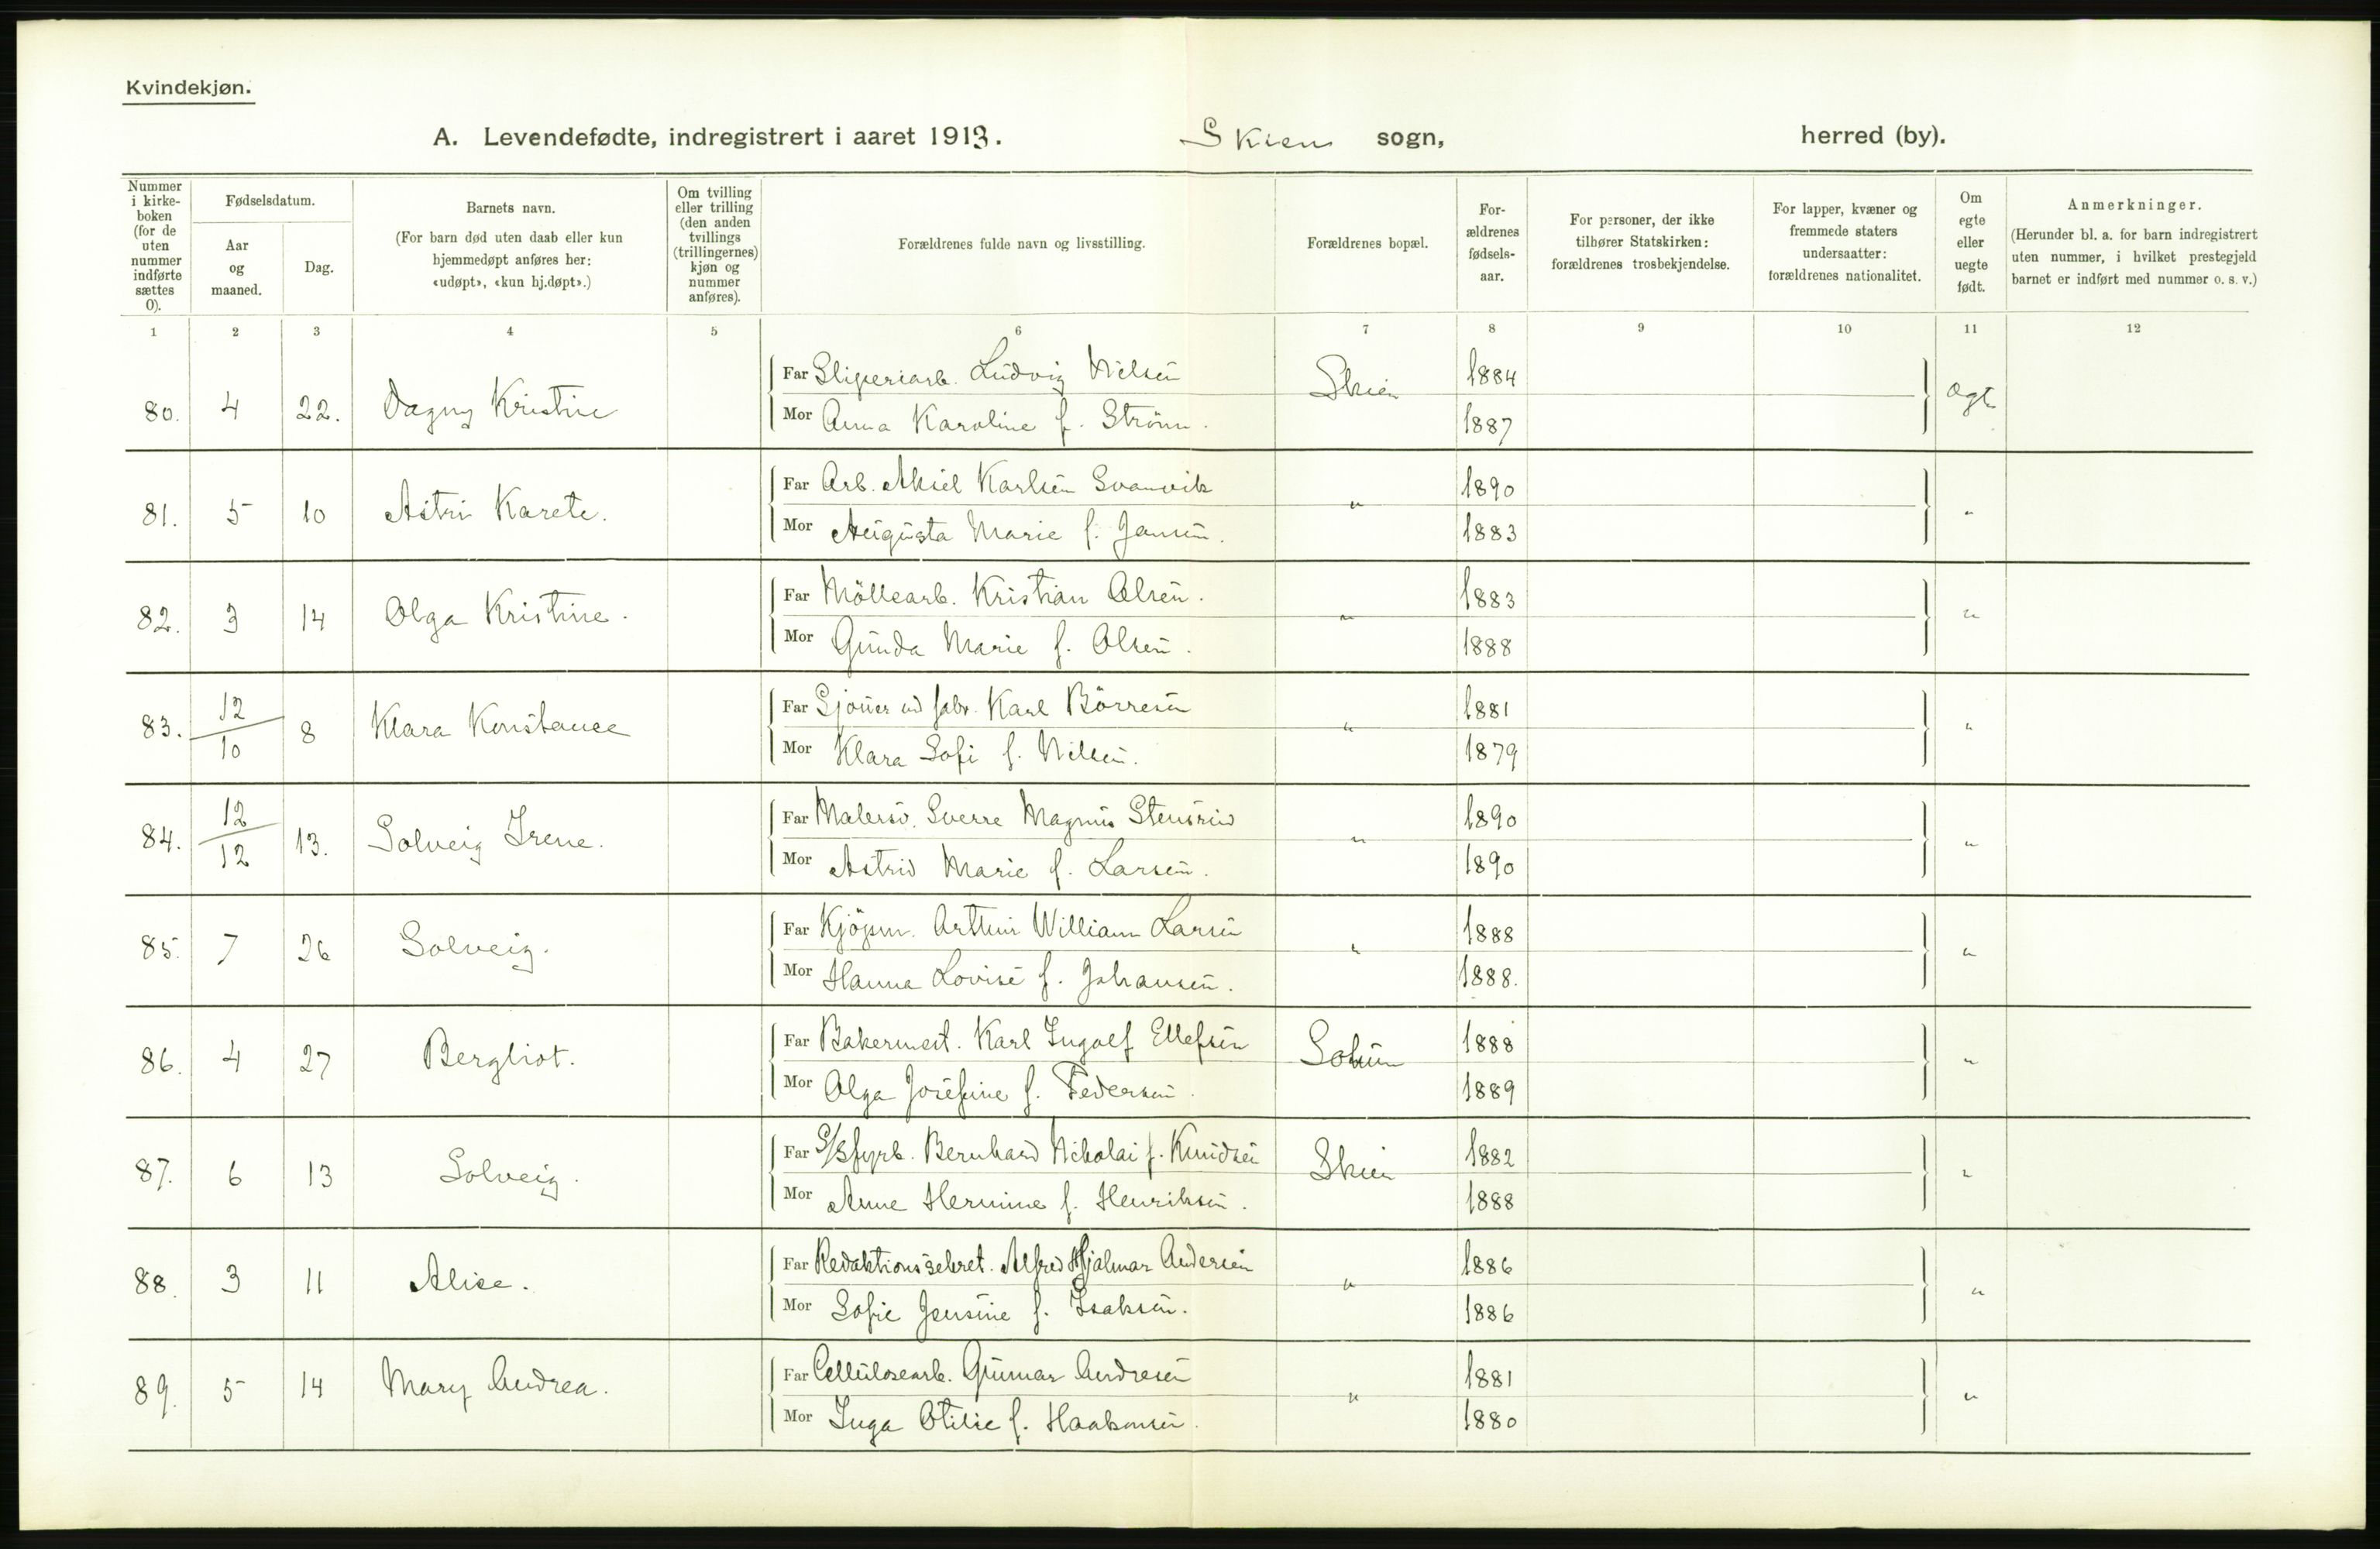 Kvindekjøn.
A. Levendefødte, indregistrert i aaret 1913. Skien sogn, herred (by).
Nummer i kirke-boken (for de uten nummer indførte sættes 0).
Fødselsdatum.
Aar og maaned.
Dag.
Barnets navn.
(For barn død uten daab eller kun hjemmedøpt anføres her: «udøpt», «kun hj.døpt».)
Om tvilling eller trilling (den anden tvillings (trillingernes) kjøn og nummer anføres).
Forældrenes fulde navn og livsstilling.
Forældrenes bopæl.
For-ældrenes fødsels-aar.
For personer, der ikke tilhører Statskirken: forældrenes trosbekjendelse.
For lapper, kvæner og fremmede staters undersaatter: forældrenes nationalitet.
Om egte eller uegte født.
Anmerkninger.
(Herunder bl. a. for barn indregistrert uten nummer, i hvilket prestegjeld barnet er indført med nummer o. s. v.)
1 2 3 4 5 6 7 8 9 10 11 12
80. 4 22. Dagny Kristine Far Sliperiarb. Ludvig Nilsen Skien 1884 Ægte
Mor Anna Karoline f. Strömn. 1887
81. 5 10 Astri Karete. Far Arb. Aksel Karlsen Svanvik " 1890 "
Mor Augusta Marie f. Jansen. 1883
82. 3 14 Olga Kristine. Far Möllearb. Kristian Olsen. " 1883 "
Mor Gunda Marie f. Olsen. 1888
83. 12/10 8 Klara Konstance Far Sjöuer ved fabr. Karl Börresen " 1881 "
Mor Klara Sofi f. Nilsen. 1879
84. 12/12 13. Solveig Irene. Far Malersv. Sverre Magnus Stensrud " 1890 "
Mor Astrid Marie f. Larsen. 1890
85. 7 26 Solveig. Far Kjöpm. Arthur William Larsen " 1888 "
Mor Hanna Lovise f. Johansen. 1888.
86. 4 27 Bergliot. Far Bakermest. Karl Ingolf Ellefsen Solum 1888 "
Mor Olga Josefine f. Pedersen. 1889
87. 6 13 Solveig. Far S/S fyrb. Bernhard Nikolai f. Knudsen Skien 1882 "
Mor Anne Hermine f. Henriksen. 1888
88. 3 11 Alice. Far Redaktionssekret. Alfred Hjalmar Andersen " 1886 "
Mor Sofie Jensine f. Isaksen. 1886
89. 5 14 Mary Andrea. Far Cellulosearb. Gunnar Andresen " 1881 "
Mor Inga Otilie f. Haakonsen. 1880